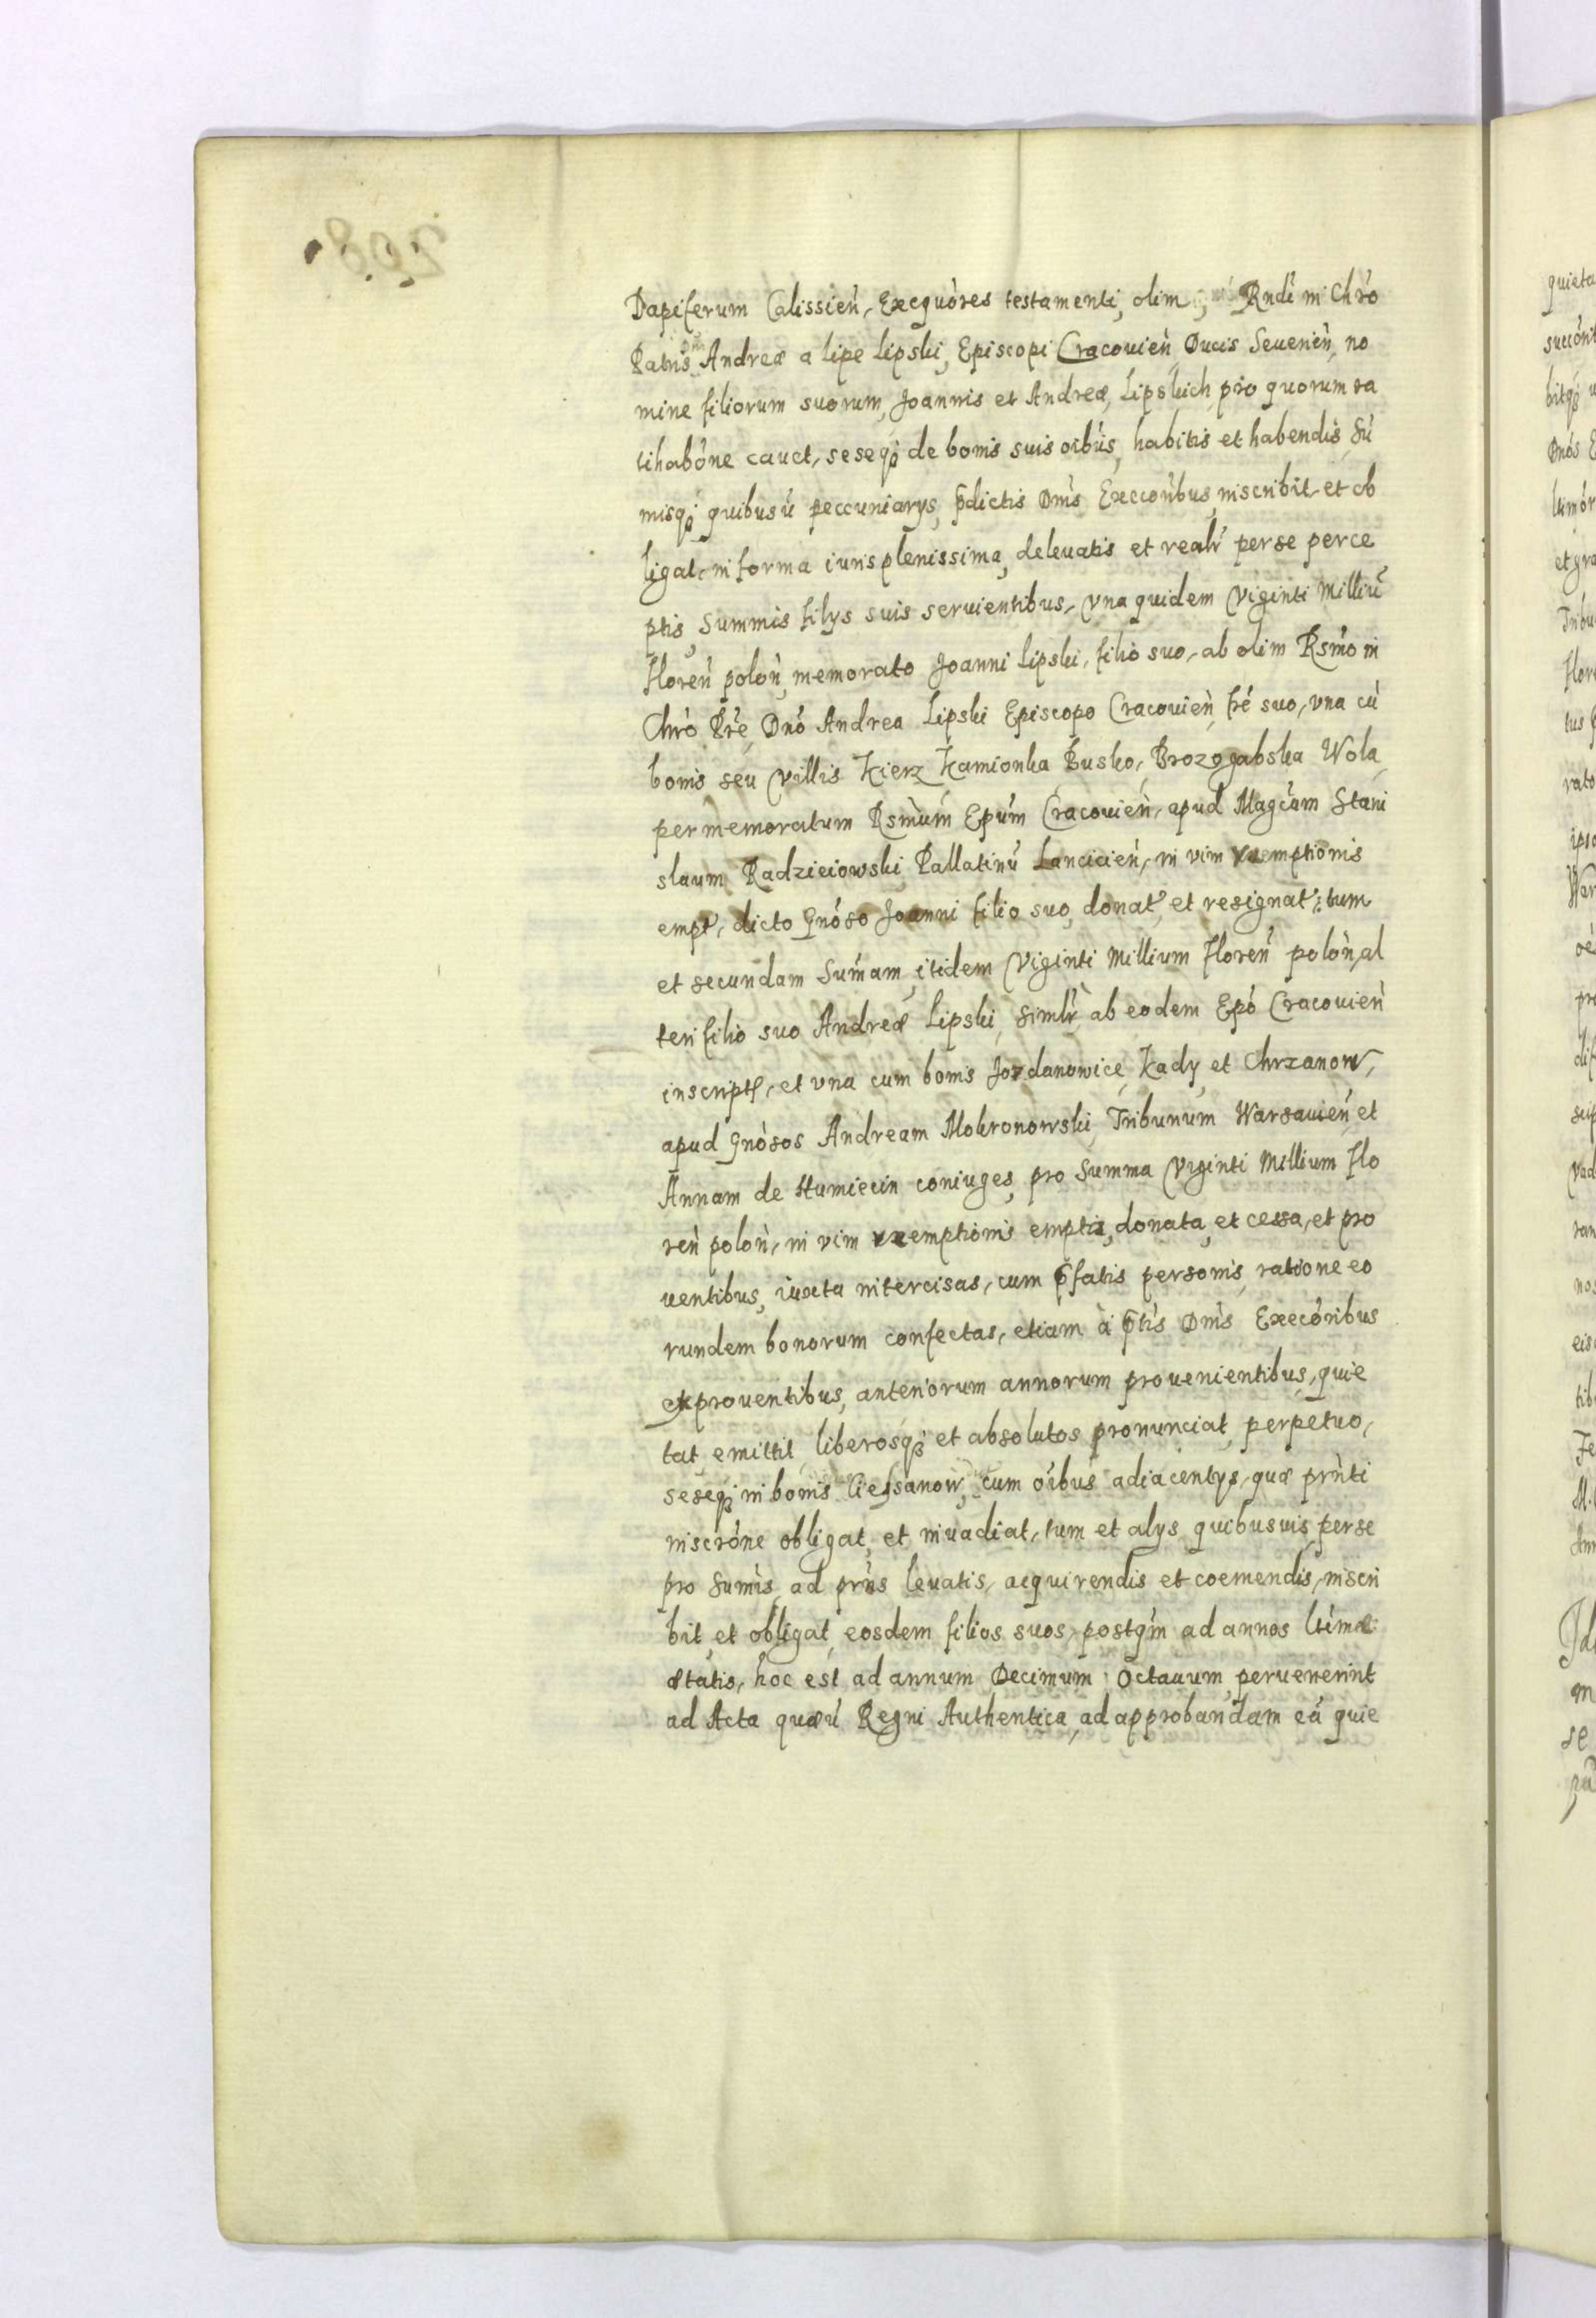 Dapiferum Calissień, Exequóres testamenti, olim Rndi in Chró
Patris Dni Andreæ a Lipe Lipski, Episcopi Cracouień Ducis Seuerień, no
mine filiorum suorum, Joannis et Andreæ, Lipskich, pro quorum ra
tihabóne cauet, seseq de bonis suis oibús, habitis et habendis, sú
misq quibusú peccuniarys, pdictis Dnis Execoribus, inscribit et ob
ligat, in forma iuris plenissima, deleuatis et realr perse perce
ptis, summis filys suis seruientibus, vna quidem Viginti Milliú
floreń polon, memorato Joanni Lipski, filio suo, ab olim Rsmo in
Chró Pre, Dnó Andrea Lipski Episcopo Cracouień, fré suo, vna cú
bonis seu Villis Kierz, Kamionka Busko, Brozogabska Wola,
per memoratum Rsmum Epum Cracouień, apud Magcum Stani
slaum Radzieiowski Pallatinú Lancicień, in vim exemptionis
empt, dicto Gnóso Joanni filio suo, donat, et resignat, tum
et secundam Sumam, itidem Viginti Millium floreń polon, al
teri filio suo Andreæ Lipski, simlr ab eodem Epó Cracouień
inscript, et vna cum bonis Jordanowice, Kady, et Chrzanow,
apud Gnósos Andream Mokronowski, Tribunum Warsauień, et
Annam de Humiecin coniuges, pro Summa Viginti Millium flo
reń polon, in vim exemptionis emptis, donata, et cessa, et pro
uentibus, iuxta intercisas, cum pfatis personis, ratione eo
rundem bonorum confectas, etiam à ptis Dnis Execóribus
ex prouentibus, anteriorum annorum prouenientibus, quie
tat emittit, liberosq et absolutos pronunciat, perpetuo,
seseq in bonis Ciessanow, cum oibus adiacentys, quæ prnti
inscróne obligat, et inuadiat, tum et alys quibusuis, perse
pro sumis, ad prns leuatis, acquirendis et coemendis, inscri
bit, et obligat, eosdem filios suos, postqm ad annos ltimæ
ætatis, hoc est ad annum Decimum Octauum peruenerint
ad Acta quæú Regni Authentica, ad approbandam eá quie